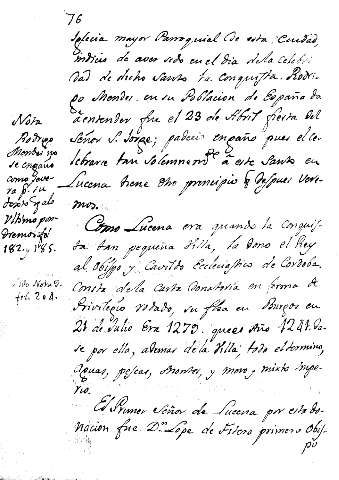 76
Iglesia mayor Parroquial de esta Ciudad,
indicio de aver sido en el dia de la celebri
dad de dicho Santo la conquista. Rodri
go Mendez en su Poblacion de España da
a entender fue el 23 de Abril fiesta del
Señor S. Jorge; padecio engaño pues el ce
lebrarse tan solemnemte. à este Santo en
Lucena tiene otro principio q despues vere
mos.
Nota
Rodrigo
Mendez no
se engaño
como
su
182. y 185.
Nota
fol. 204.
Como Lucena era quando la conquis
ta tan pequeña Villa, la dono el Rey
al Obispo y Cavildo Ecclesiastico de Cordoba
Consta de la Carta Donatoria en forma de
Privilegio rodado, su fha en Burgos en
21 de Julio Era 1279. que es Año 1241. Da
se por ello, ademas de la Villa; todo el termino,
aguas, pescas, Montes, y mero, y mixto impe
rio.
El Primer Señor de Lucena por esta do
nacion fue Dn. Lope de Fitero primero Obis
po